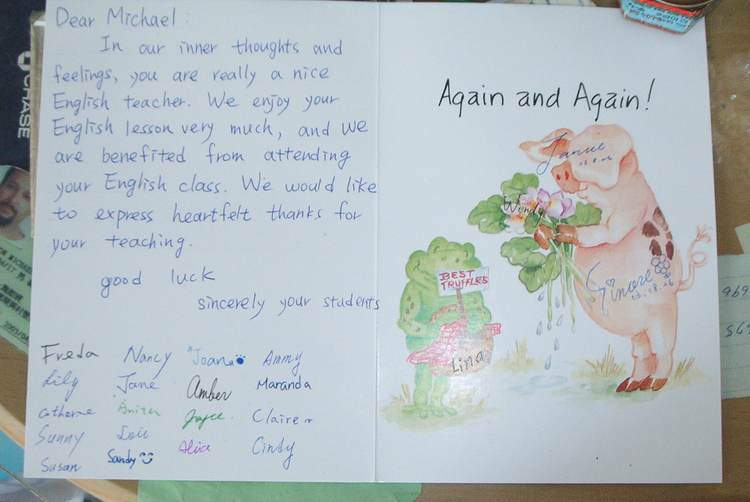 Dear Michael:
In our inner thoughts and
feelings, you are really a nice
English teacher. We enjoy your
English lesson very much, and we
are benefited from attending
your English class. We would like
to express heartfelt thanks for
your teaching.
good luck
sincerely your students
Freda Nancy Joan Ammy
Lily Jane Amber Maranda
Catherne Anita Joyce Claire
Sunny Lois Alia Cindy
Susan Sandy
Again and Again!
Wendy
BEST
TRUFFLES
Lina
CHASE